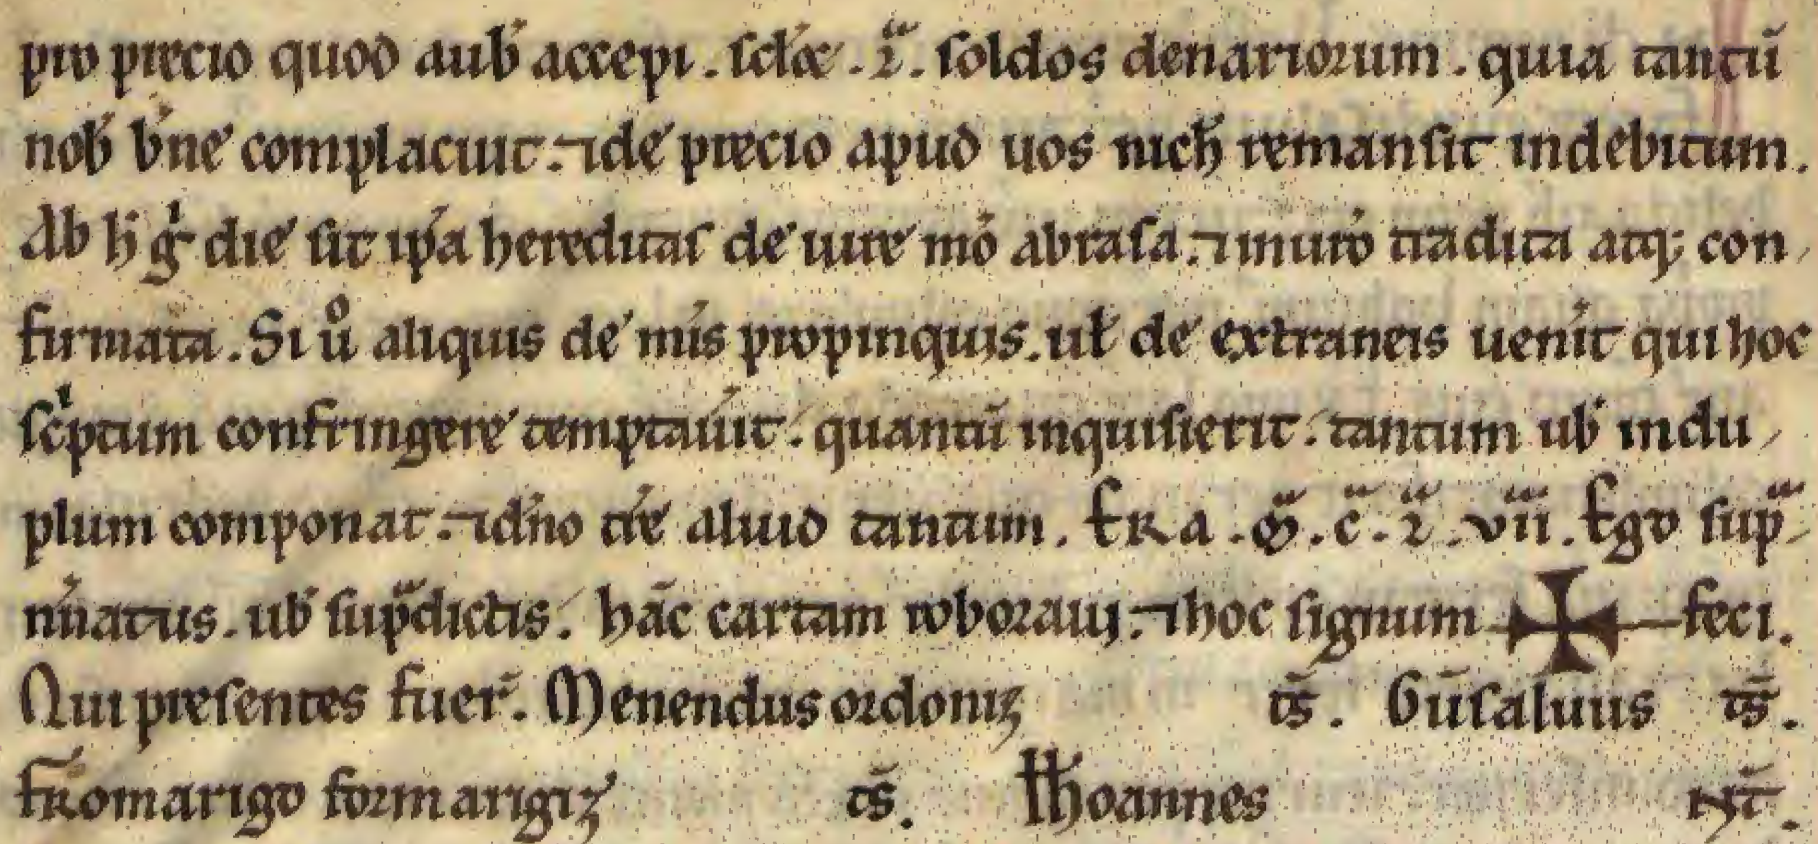 pro precio quod a uob̄ accepi. scl̓ce. L̃ᵃ. soldos denariorum. quia tantū
nob̄ b̓ne complacuit. ⁊ de precio apud uos nich̄ remansit indebitum.
Ab h̓ g̓ die sit ip̄a hereditas de iure m̓o abrasa. ⁊ in ur̓o tradita atq; con
firmata. Si uͦ aliquis de m̓is propinquis. ul̄ de extraneis uen̓it qui hoc
sc̓ptum confringere temptau̓it. quantū inquisierit. tantum uob̄ in du
plum componat. ⁊ d̄no t̓re aliud tantum. Era. M̃. C̃. L̃. VII. Ego sup̄
n̓iatus. uob̄ sup̄dictis. hāc cartam roboraui. ⁊ hoc signum ✠ feci.
Qui presentes fuer̄. Menendus ordoniz ts̄. Gūsaluus ts̄.
Fromarigo formarigiz ts̄. Ihoannes Nt̄.